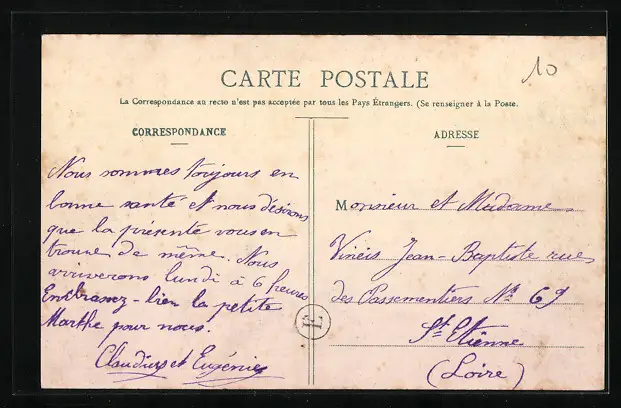 10
CARTE POSTALE
La Correspondance au recto n'est pas acceptée par tous les Pays Étrangers. (Se renseigner à la Poste.
CORRESPONDANCE
Nous sommes toujours en
bonne santé et nous désirons
que la présente vous en
trouve de même. Nous
arriverons lundi à 6 heures
Embrassez-bien la petite
Marthe pour nous.
Claudius et Eugénie
E
ADRESSE
Monsieur et Madame
Jean-Baptiste rue
des Passementiers No 69
St Etienne
(Loire)